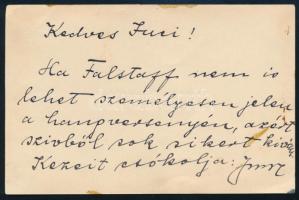 Kedves Fuci!
Ha Falstaff nem is
lehet személyesen jelen
a hangversenyén, azért
szivből sok sikert kíván
Kezeit csókolja: